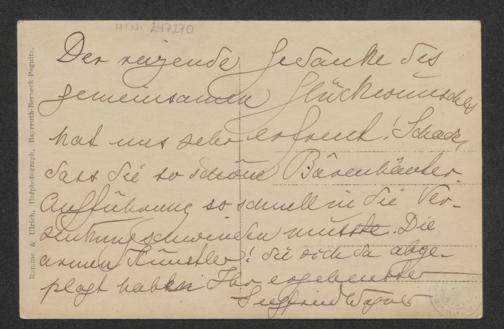 H.I.N. 247270
Der reizende Gedanke des
gemeinsamen Glückwunsches
hat uns sehr erfreut! Schade,
dass die so schöne Bärenhäuter-
Aufführung so schnell in die Ver-
senkung schwinden musste. Die
armen Künstler! die sich da abge-
plagt haben Ihr ergebenster
Siegfried Wagner
Ramme & Ulrich, Hofphotograph, Bayreuth-Berneck-Pegnitz.